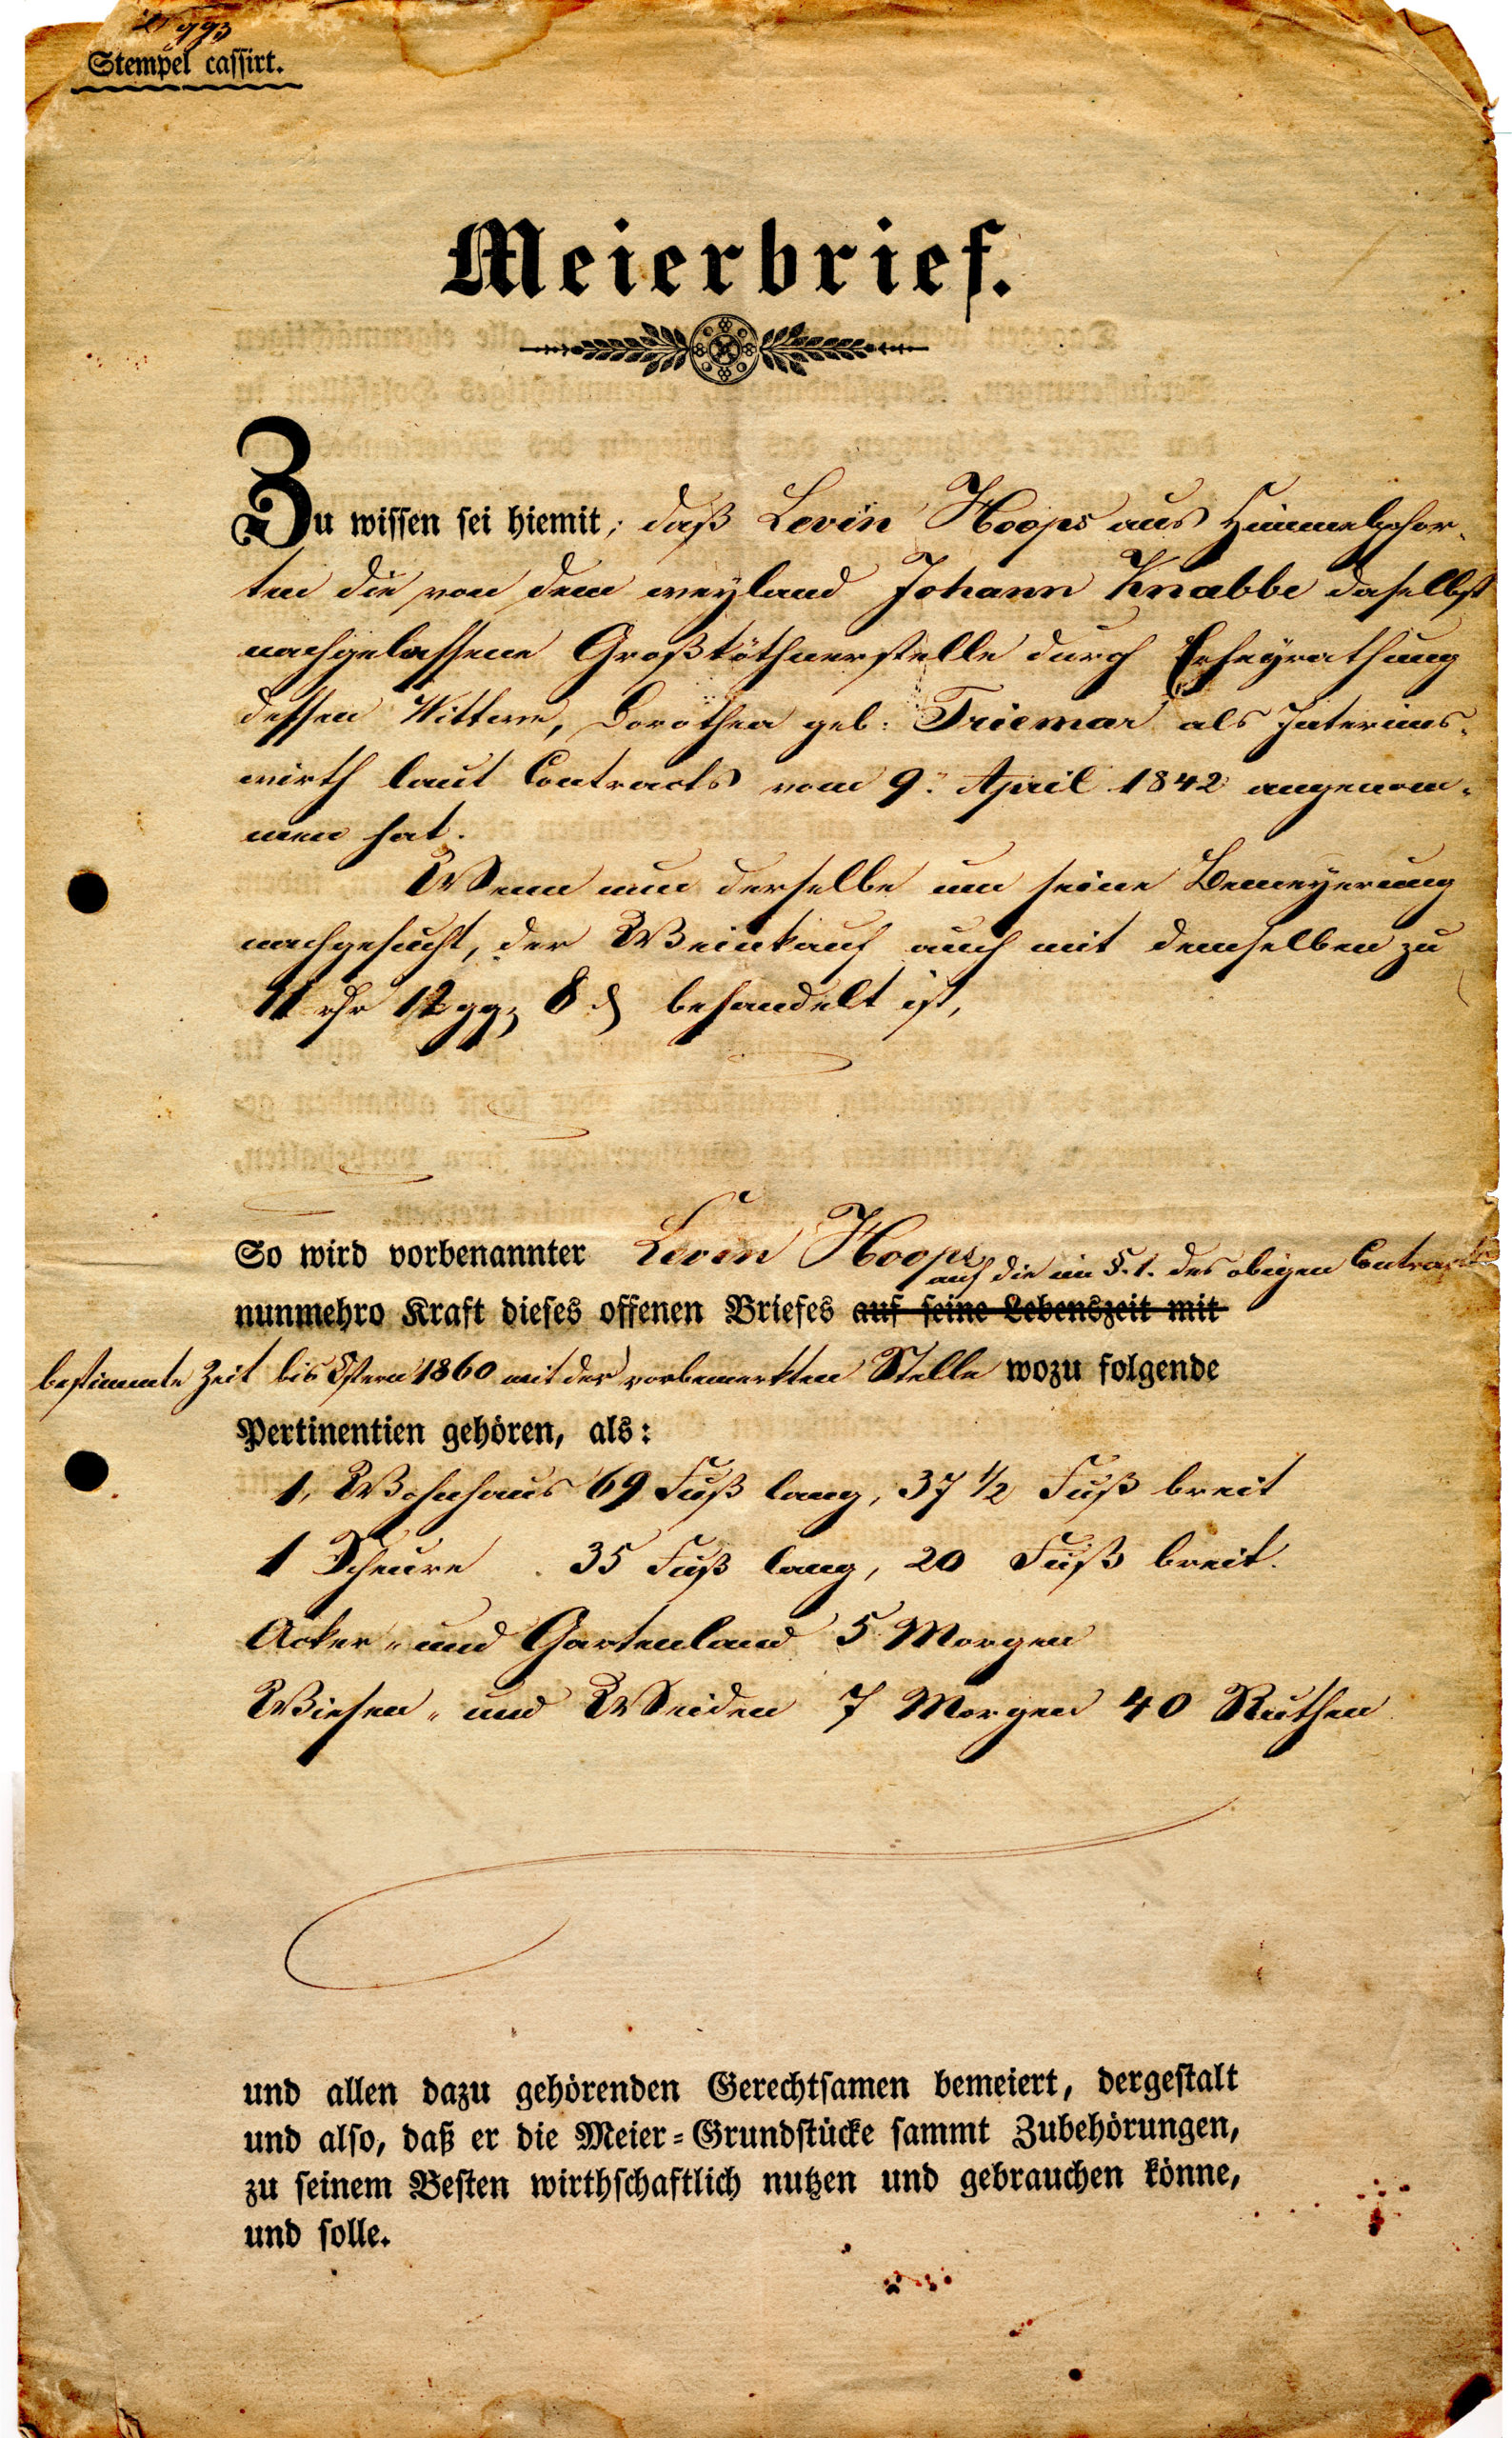 2 ggr
Stempel cassirt.
Meierbrief.
Zu wissen sei hiemit, daß Levin Hoops aus Himmelpfor-
ten die von dem weyland Johann Knabbe daselbst
nachgelassene Großköthnerstelle durch Erheyrathung
dessen Wittwe, Dorothea geb: Triemar als Interims-
wirth laut Contracts vom 9. April 1842 angenom-
men hat.
Wenn nun derselbe um seine Bemeyerung
nachgesucht, der Weinkauf auch mit demselben zu
11 rthr 12 ggr 8 d behandelt ist,
So wird vorbenannter Levin Hoops
auf die im §. 1. des obigen Contracts
nunmehro Kraft dieses offenen Briefes auf seine Lebenszeit mit
bestimmte Zeit bis Ostern 1860 mit der vorbemerkten Stelle wozu folgende
Pertinentien gehören, als:
1, Wohnhaus 69 Fuß lang, 37 1/2 Fuß breit
1 Scheure 35 Fuß lang, 20 Fuß breit.
Acker- und Gartenland 5 Morgen
Wiesen- und Weiden 7 Morgen 40 Ruthen
und allen dazu gehörenden Gerechtsamen bemeiert, dergestalt
und also, daß er die Meier-Grundstücke sammt Zubehörungen,
zu seinem Besten wirthschaftlich nutzen und gebrauchen könne,
und solle.